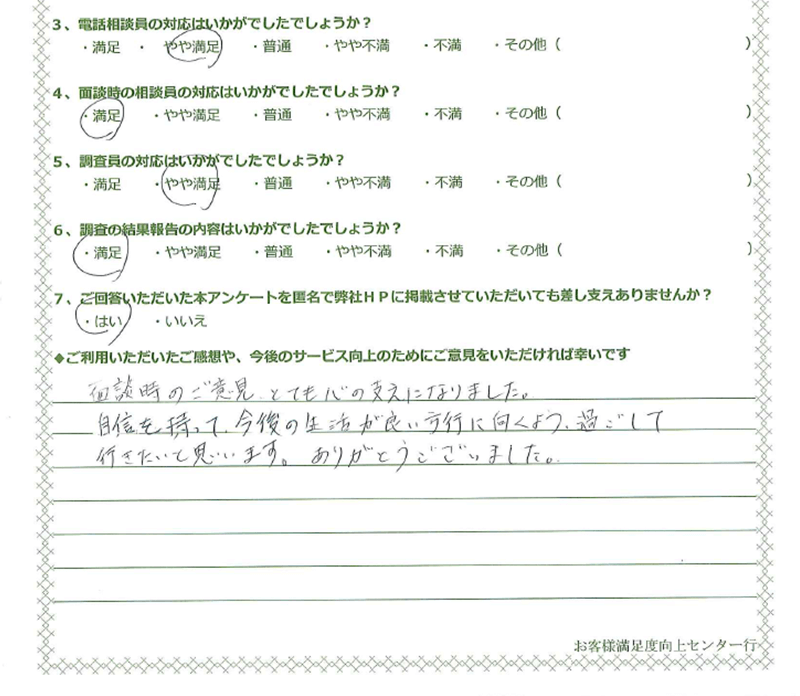 ３、電話相談員の対応はいかがでしたでしょうか？
・満足 ・ やや満足 ・普通 ・やや不満 ・不満 ・その他（ ）
４、面談時の相談員の対応はいかがでしたでしょうか？
・満足 ・やや満足 ・普通 ・やや不満 ・不満 ・その他（ ）
５、調査員の対応はいかがでしたでしょうか？
・満足 ・やや満足 ・普通 ・やや不満 ・不満 ・その他（ ）
６、調査の結果報告の内容はいかがでしたでしょうか？
・満足 ・やや満足 ・普通 ・やや不満 ・不満 ・その他（ ）
７、ご回答いただいた本アンケートを匿名で弊社ＨＰに掲載させていただいても差し支えありませんか？
・はい ・いいえ
◆ご利用いただいたご感想や、今後のサービス向上のためにご意見をいただければ幸いです
面談時のご意見、とても心の支えになりました。
自信を持って、今後の生活が良い方行に向くよう、過ごして
行きたいと思います。ありがとうございました。
お客様満足度向上センター行